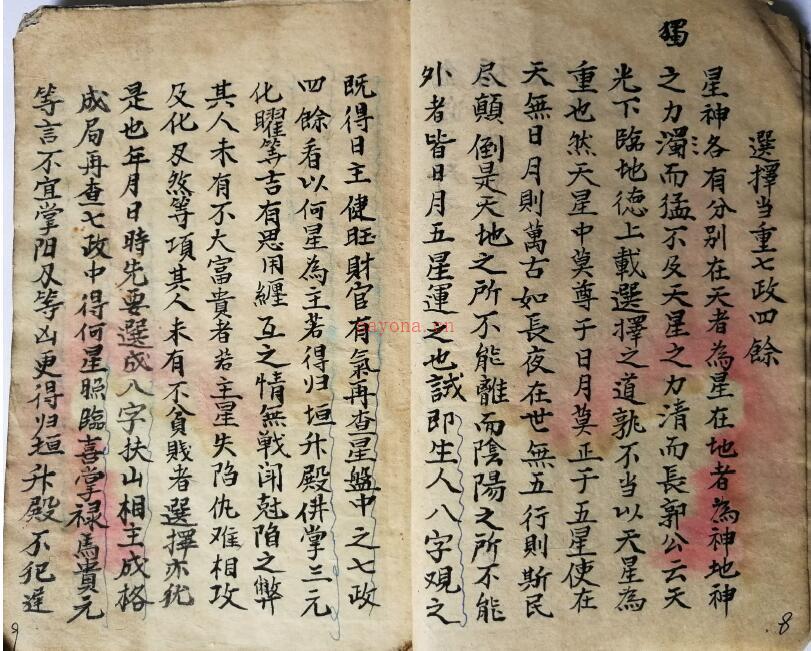 獨
選擇当重七政四餘
星神各有分别在天者為星在地者為神地神
之力濁而猛不及天星之力清而長郭公云天
光下臨地德上載選擇之道孰不当以天星為
重也然天星中莫尊于日月莫正于五星使在
天無日月則萬古如長夜在世無五行則斯民
尽顛倒是天地之所不能離而陰陽之所不能
外者皆日月五星運之也誠即生人八字观之
既得日主健旺財官有氣再查星盤中之七政
四餘看以何星為主若得归垣升殿併掌三元
化曜等吉有恩用纏互之情無戦闘尅陷之弊
其人未有不大富貴者若主星失陷仇难相攻
及化刃煞等項其人未有不貧賤者選擇亦犹
是也年月日時先要選成八字扶山相主成格
成局再查七政中得何星照臨喜掌禄馬貴元
等言不宜掌阳刃等凶更得归垣升殿不犯逆
8
9